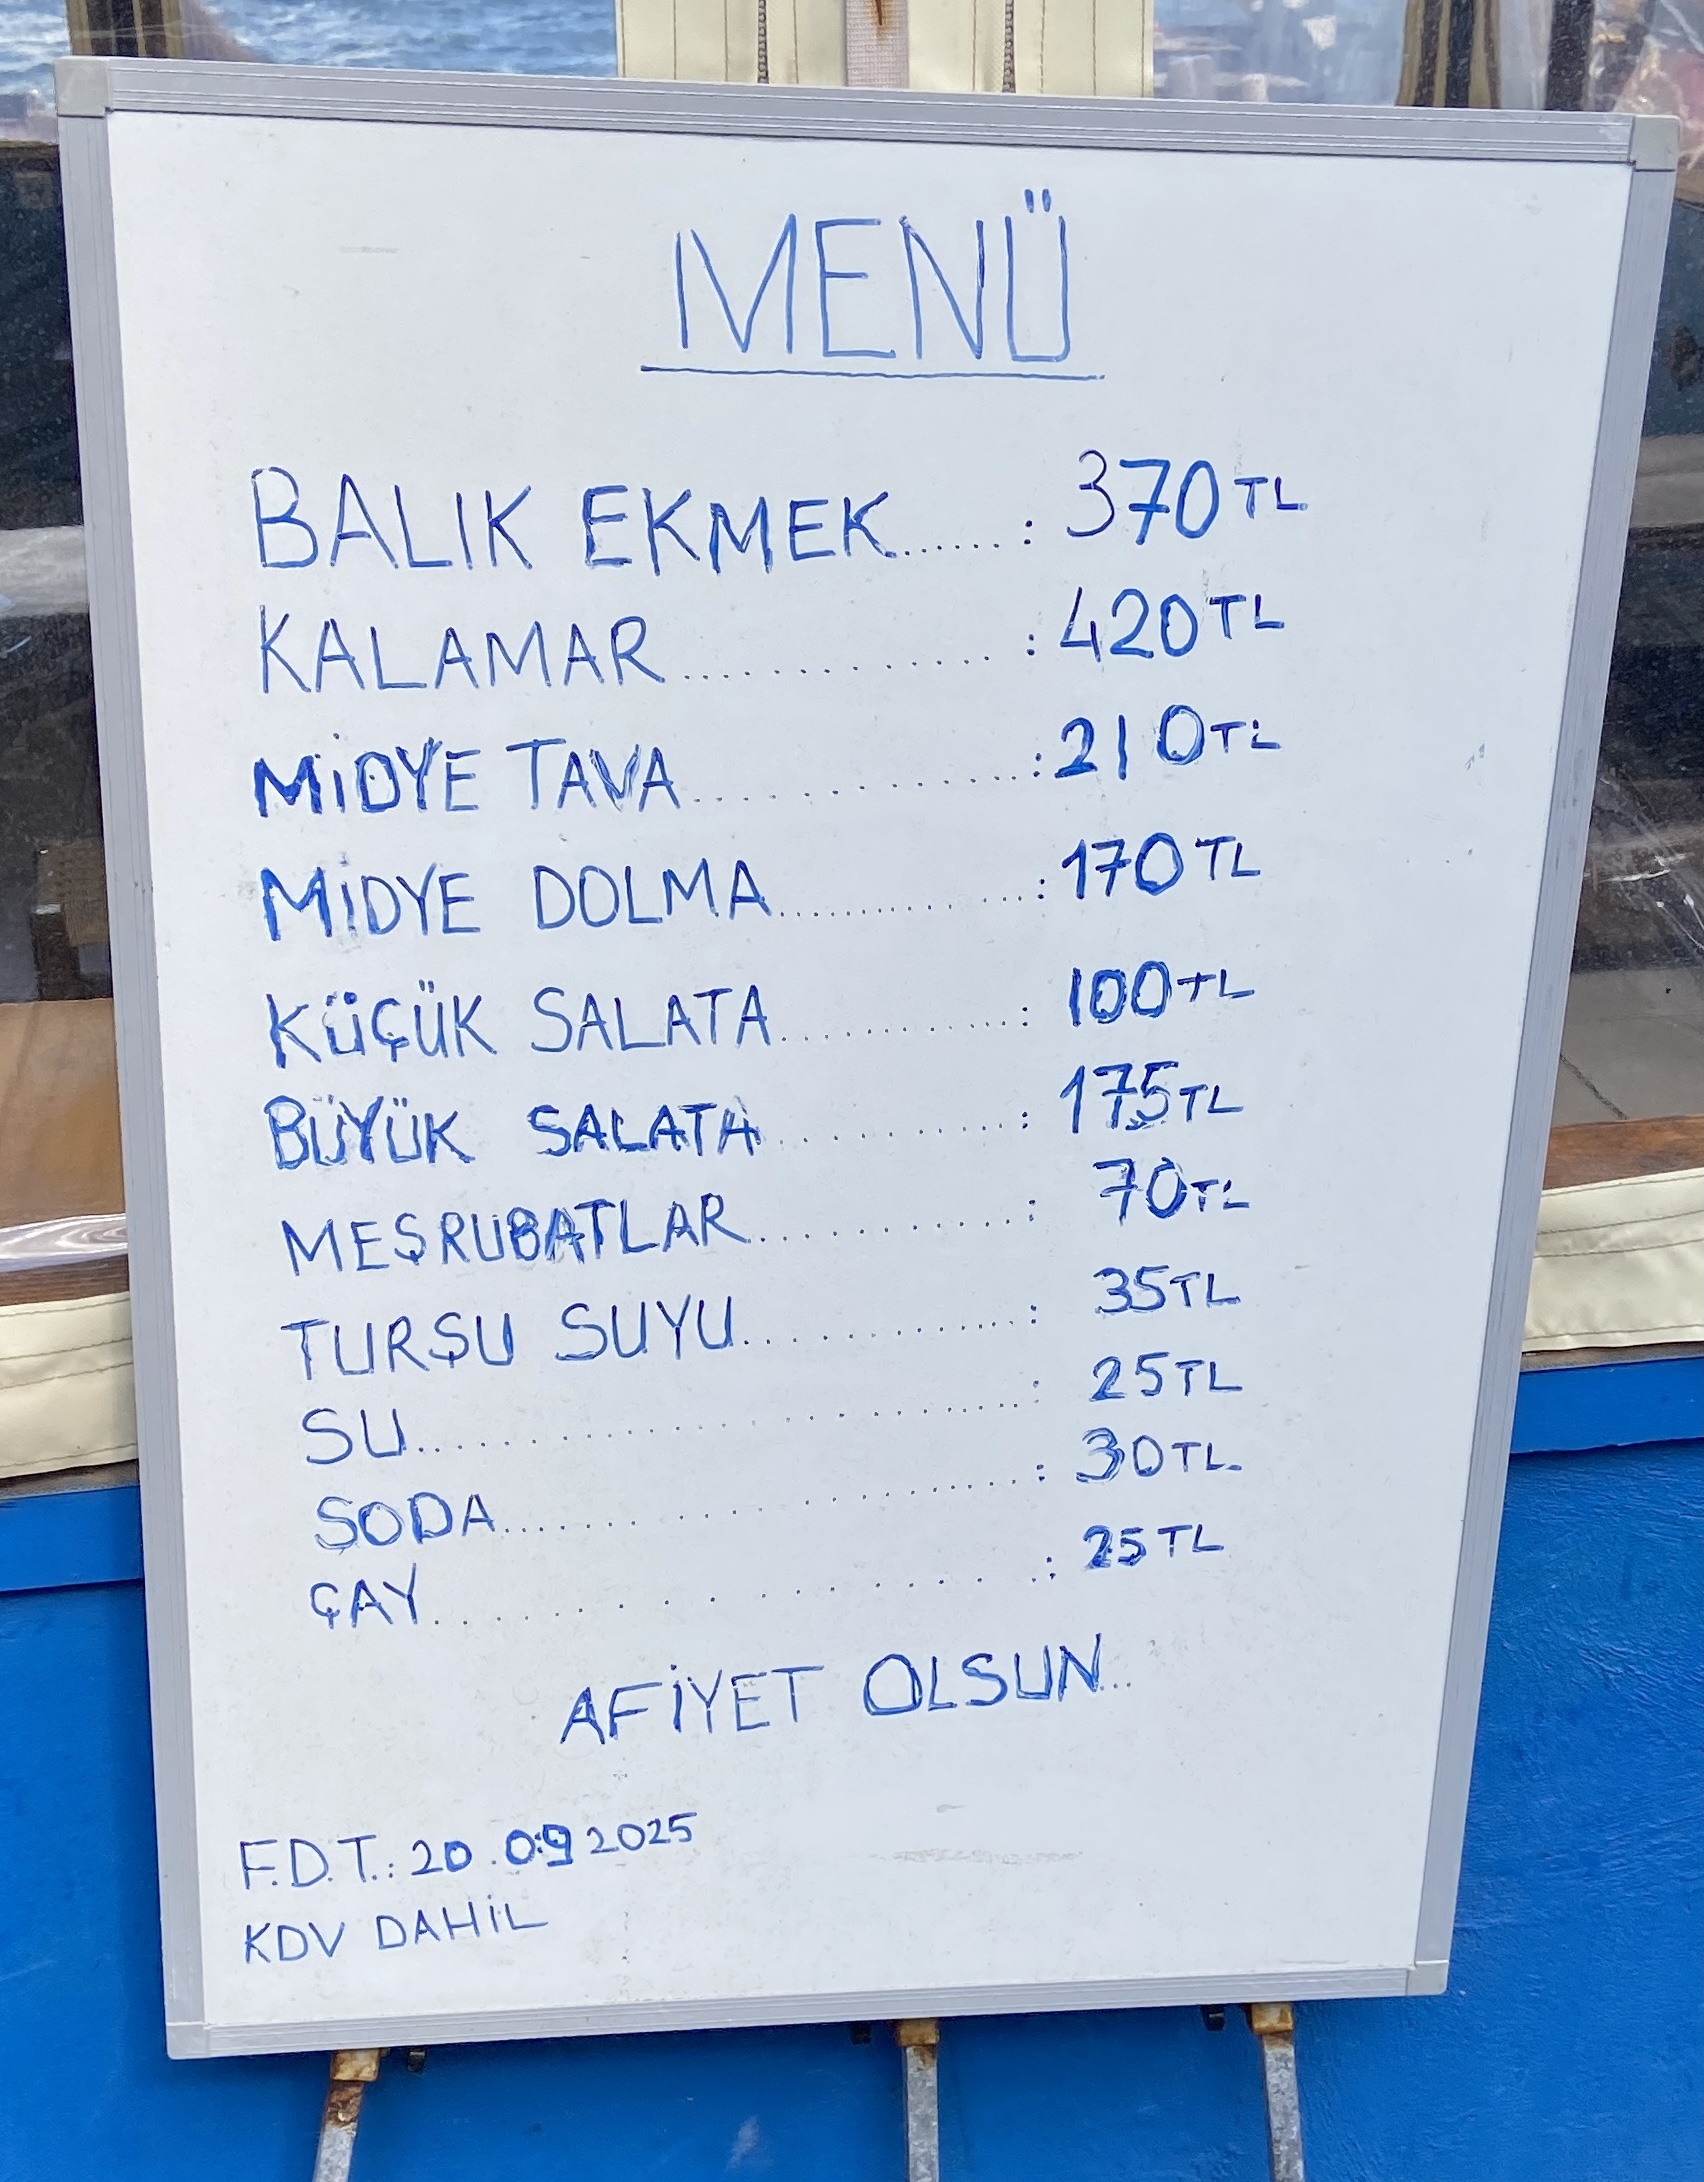 MENÜ
BALIK EKMEK......: 370 TL
KALAMAR............: 420 TL
MİDYE TAVA............: 210 TL
MİDYE DOLMA..............: 170 TL
KÜÇÜK SALATA............: 100 TL
BÜYÜK SALATA............: 175 TL
MEŞRUBATLAR............: 70 TL
TURŞU SUYU............: 35 TL
SU....................: 25 TL
SODA..................: 30 TL.
ÇAY..............: 25 TL
AFİYET OLSUN...
F.D.T.: 20.09 2025
KDV DAHİL